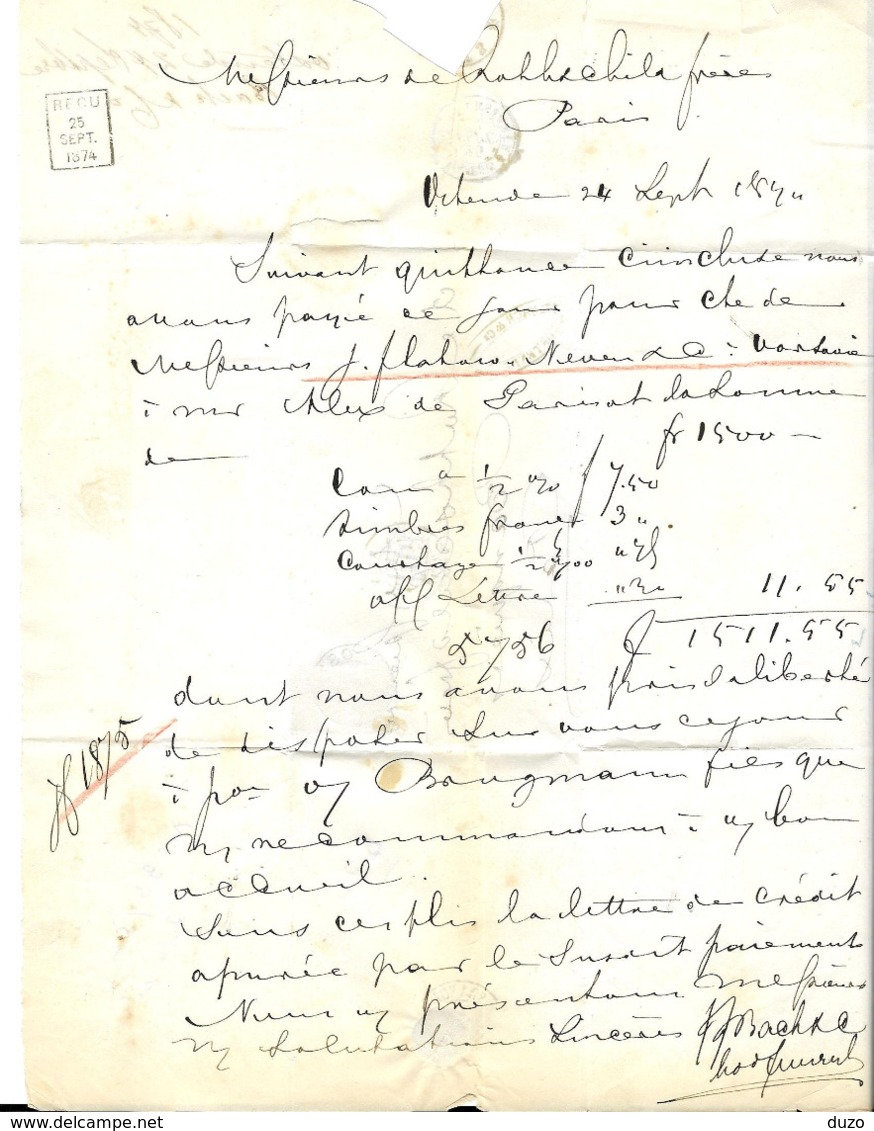 Messieurs de Rothschild frères
Paris
REÇU
25
SEPT.
1874
Ostende 24 Sept 1874
Suivant quittance cincluse nous
avons payé ce jour pour cte de
Messieurs J. flatow Neveu & Co à Varsovie
à mr Alex de Parisot la Somme
de fr 1500 —
Comon ½ % f 7.50
timbres france 3 "
Courtage ½ %00 " 75
aff Lettre " 30 11.55
f 1511.55
dont nous avons pris la liberté
de disposer sur vous ce jour
à Brugmann fils que
ns recommandons à v/ bon
accueil.
Sous ces plis la lettre de crédit
apurée par le susdit paiement
Nous v/ présentons Messieurs
ns salutations sincères
Bach & C
1875
duzo